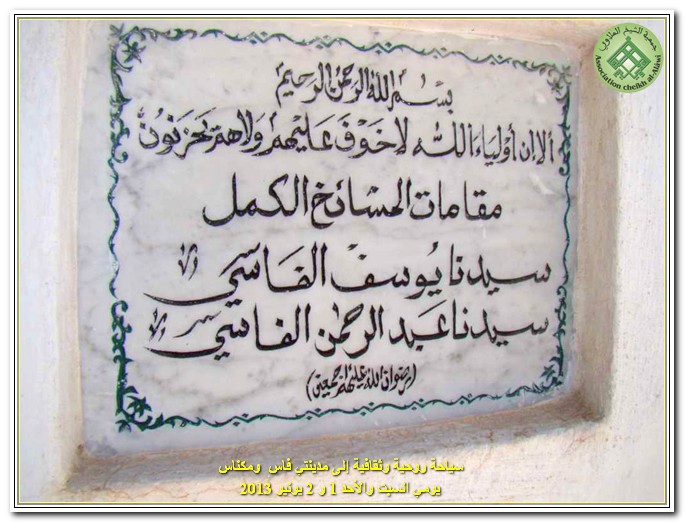 جمعية الشيخ العلاوي
Association cheikh al-Alawi
بسم الله الرحمن الرحيم
ألا إن أولياء الله لا خوف عليهم ولا هم يحزنون
مقامات المسائخ الكمل
سيدنا يوسف الفاسي
سيدنا عبد الرحمن الفاسي
(رضوان الله عليهم أجمعين)
سياحة روحية وثقافية إلى مدينتي فاس ومكناس
يومي السبت والأحد 1 و 2 يونيو 2013